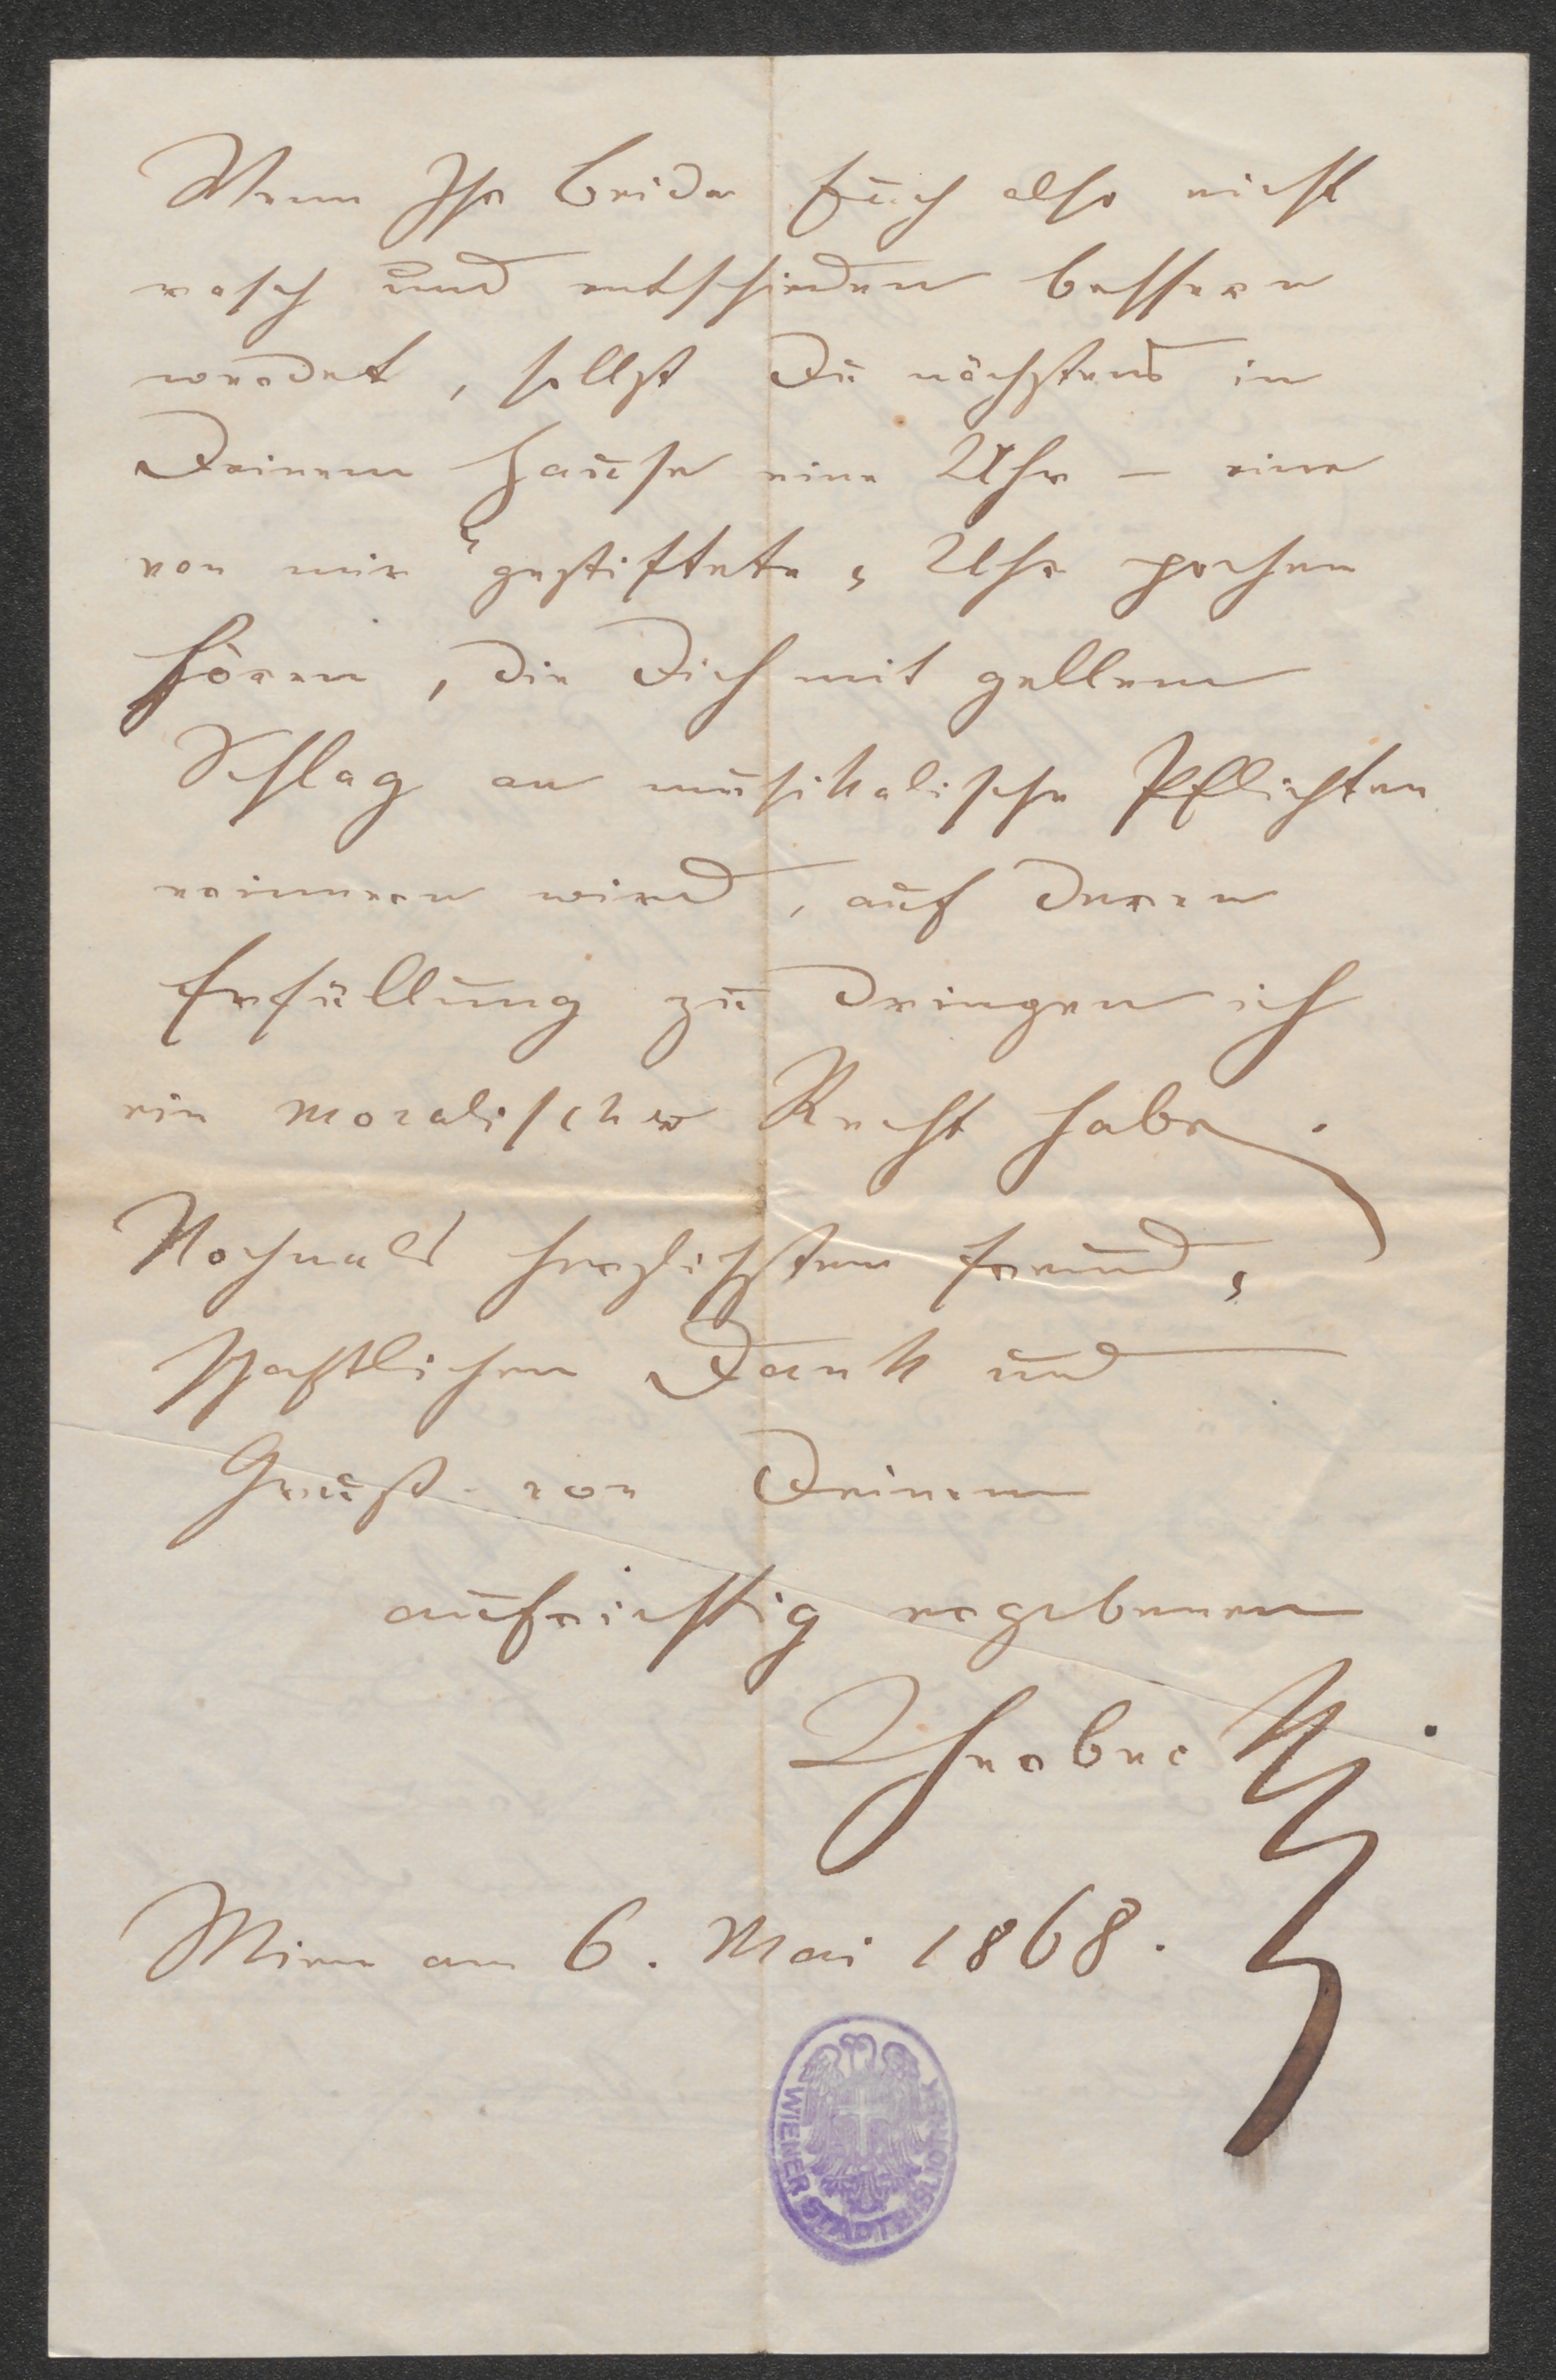 Wenn Ihr beide Euch also nicht
rasch und entschieden bessern
werdet, sollst Du nächstens in
Deinem Hause eine Uhr – eine
von mir "gestiftete" Uhr pochen
hören, die Dich mit gellem
Schlag an musikalische Pflichten
erinnern wird, auf deren
Erfüllung zu dringen ich
ein moralisches Recht habe.
Nochmals herzlichsten freund-
schaftlichen Dank und
Gruß von Deinem
aufrichtig ergebenen
Herbeck
Wien am 6. Mai 1868.
WIENER STADTBIBLIOTHEK